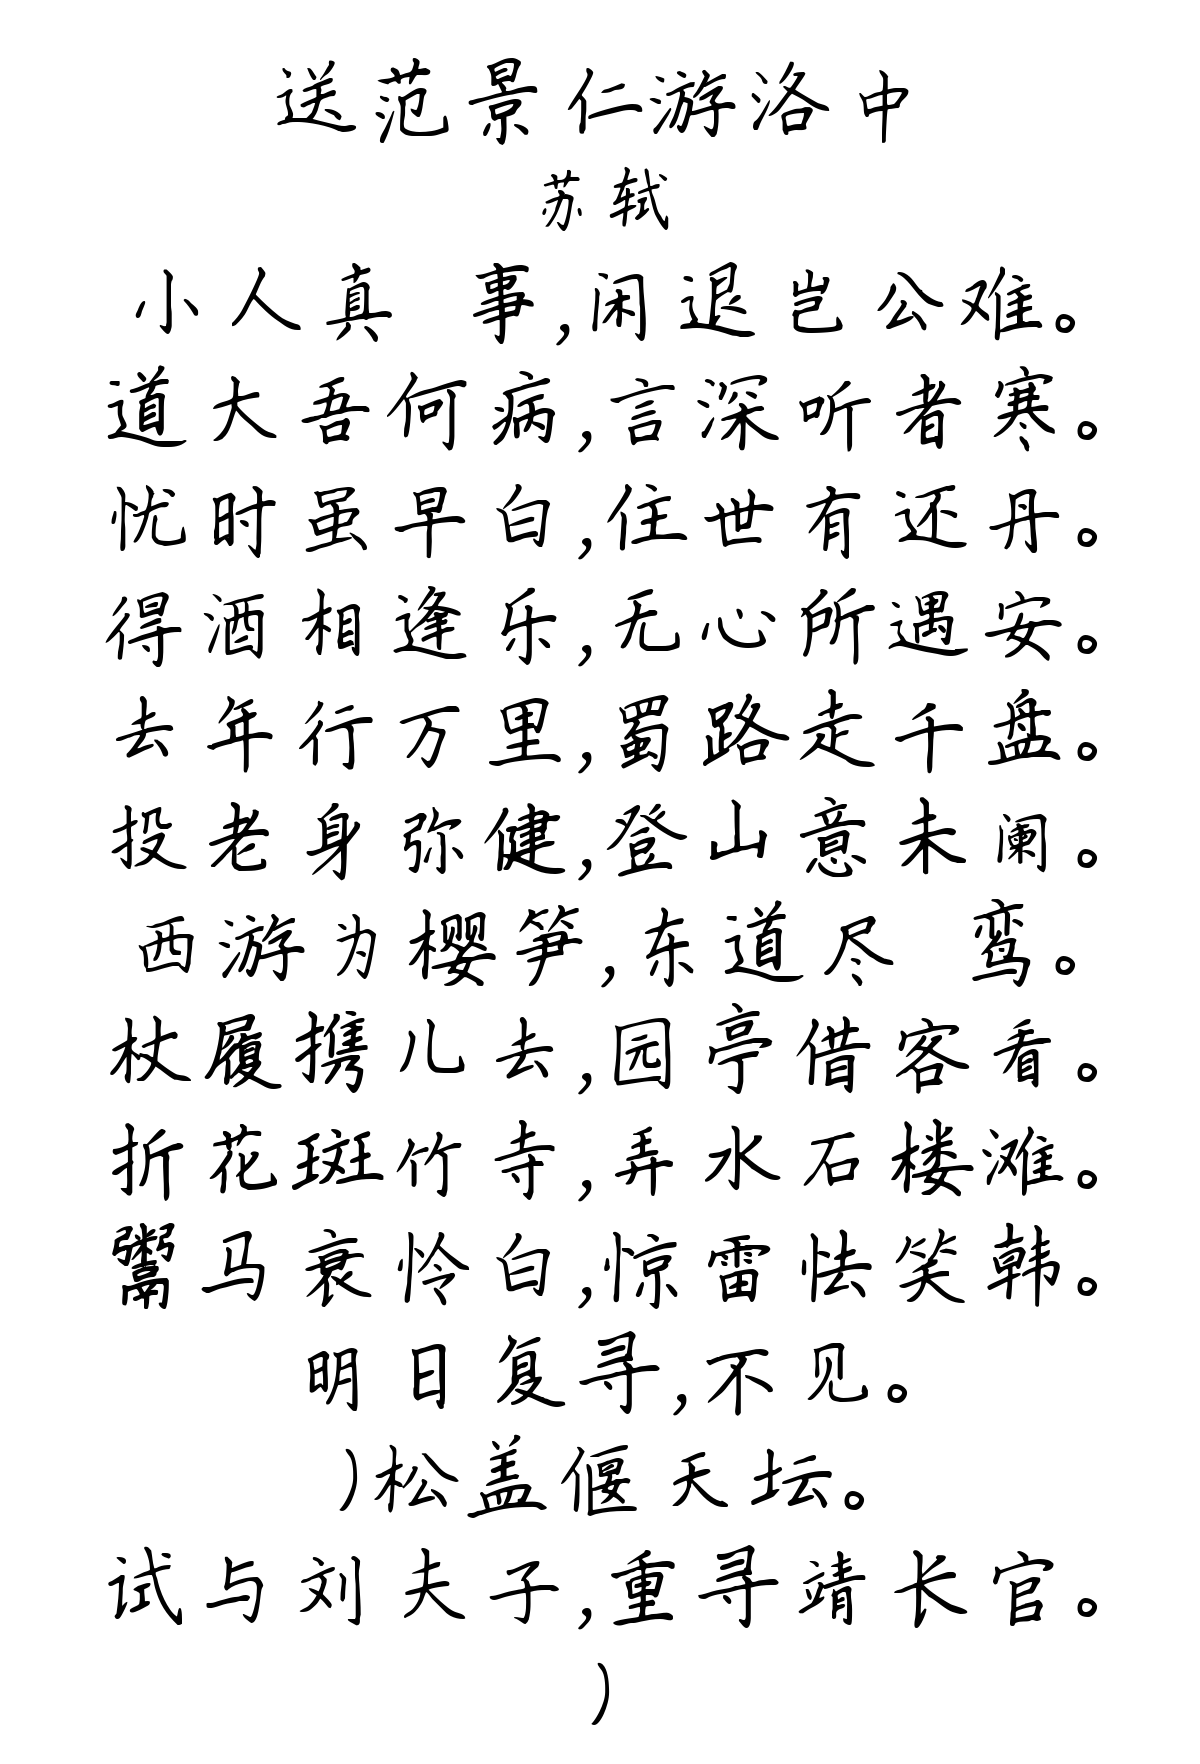 送范景仁游洛中
苏轼
小人真 事,闲退岂公难。
道大吾何病,言深听者寒。
忧时虽早白,住世有还丹。
得酒相逢乐,无心所遇安。
去年行万里,蜀路走千盘。
投老身弥健,登山意未阑。
西游为樱笋,东道尽 鸾。
杖履携儿去,园亭借客看。
折花斑竹寺,弄水石楼滩。
鬻马衰怜白,惊雷怯笑韩。
明日复寻,不见。
)松盖偃天坛。
试与刘夫子,重寻靖长官。
)